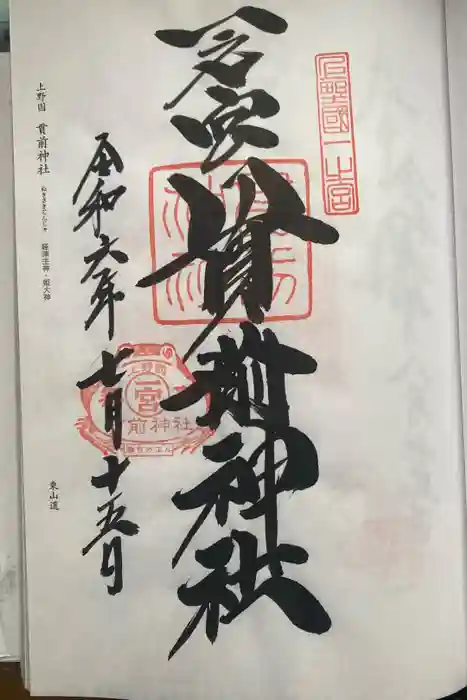 上野國一之宮
一之宮 貫前神社
令和六年七月十五日
一宮
貫前神社
上野国 貫前神社 ぬきさきじんじゃ 経津主神・姫大神
東山道